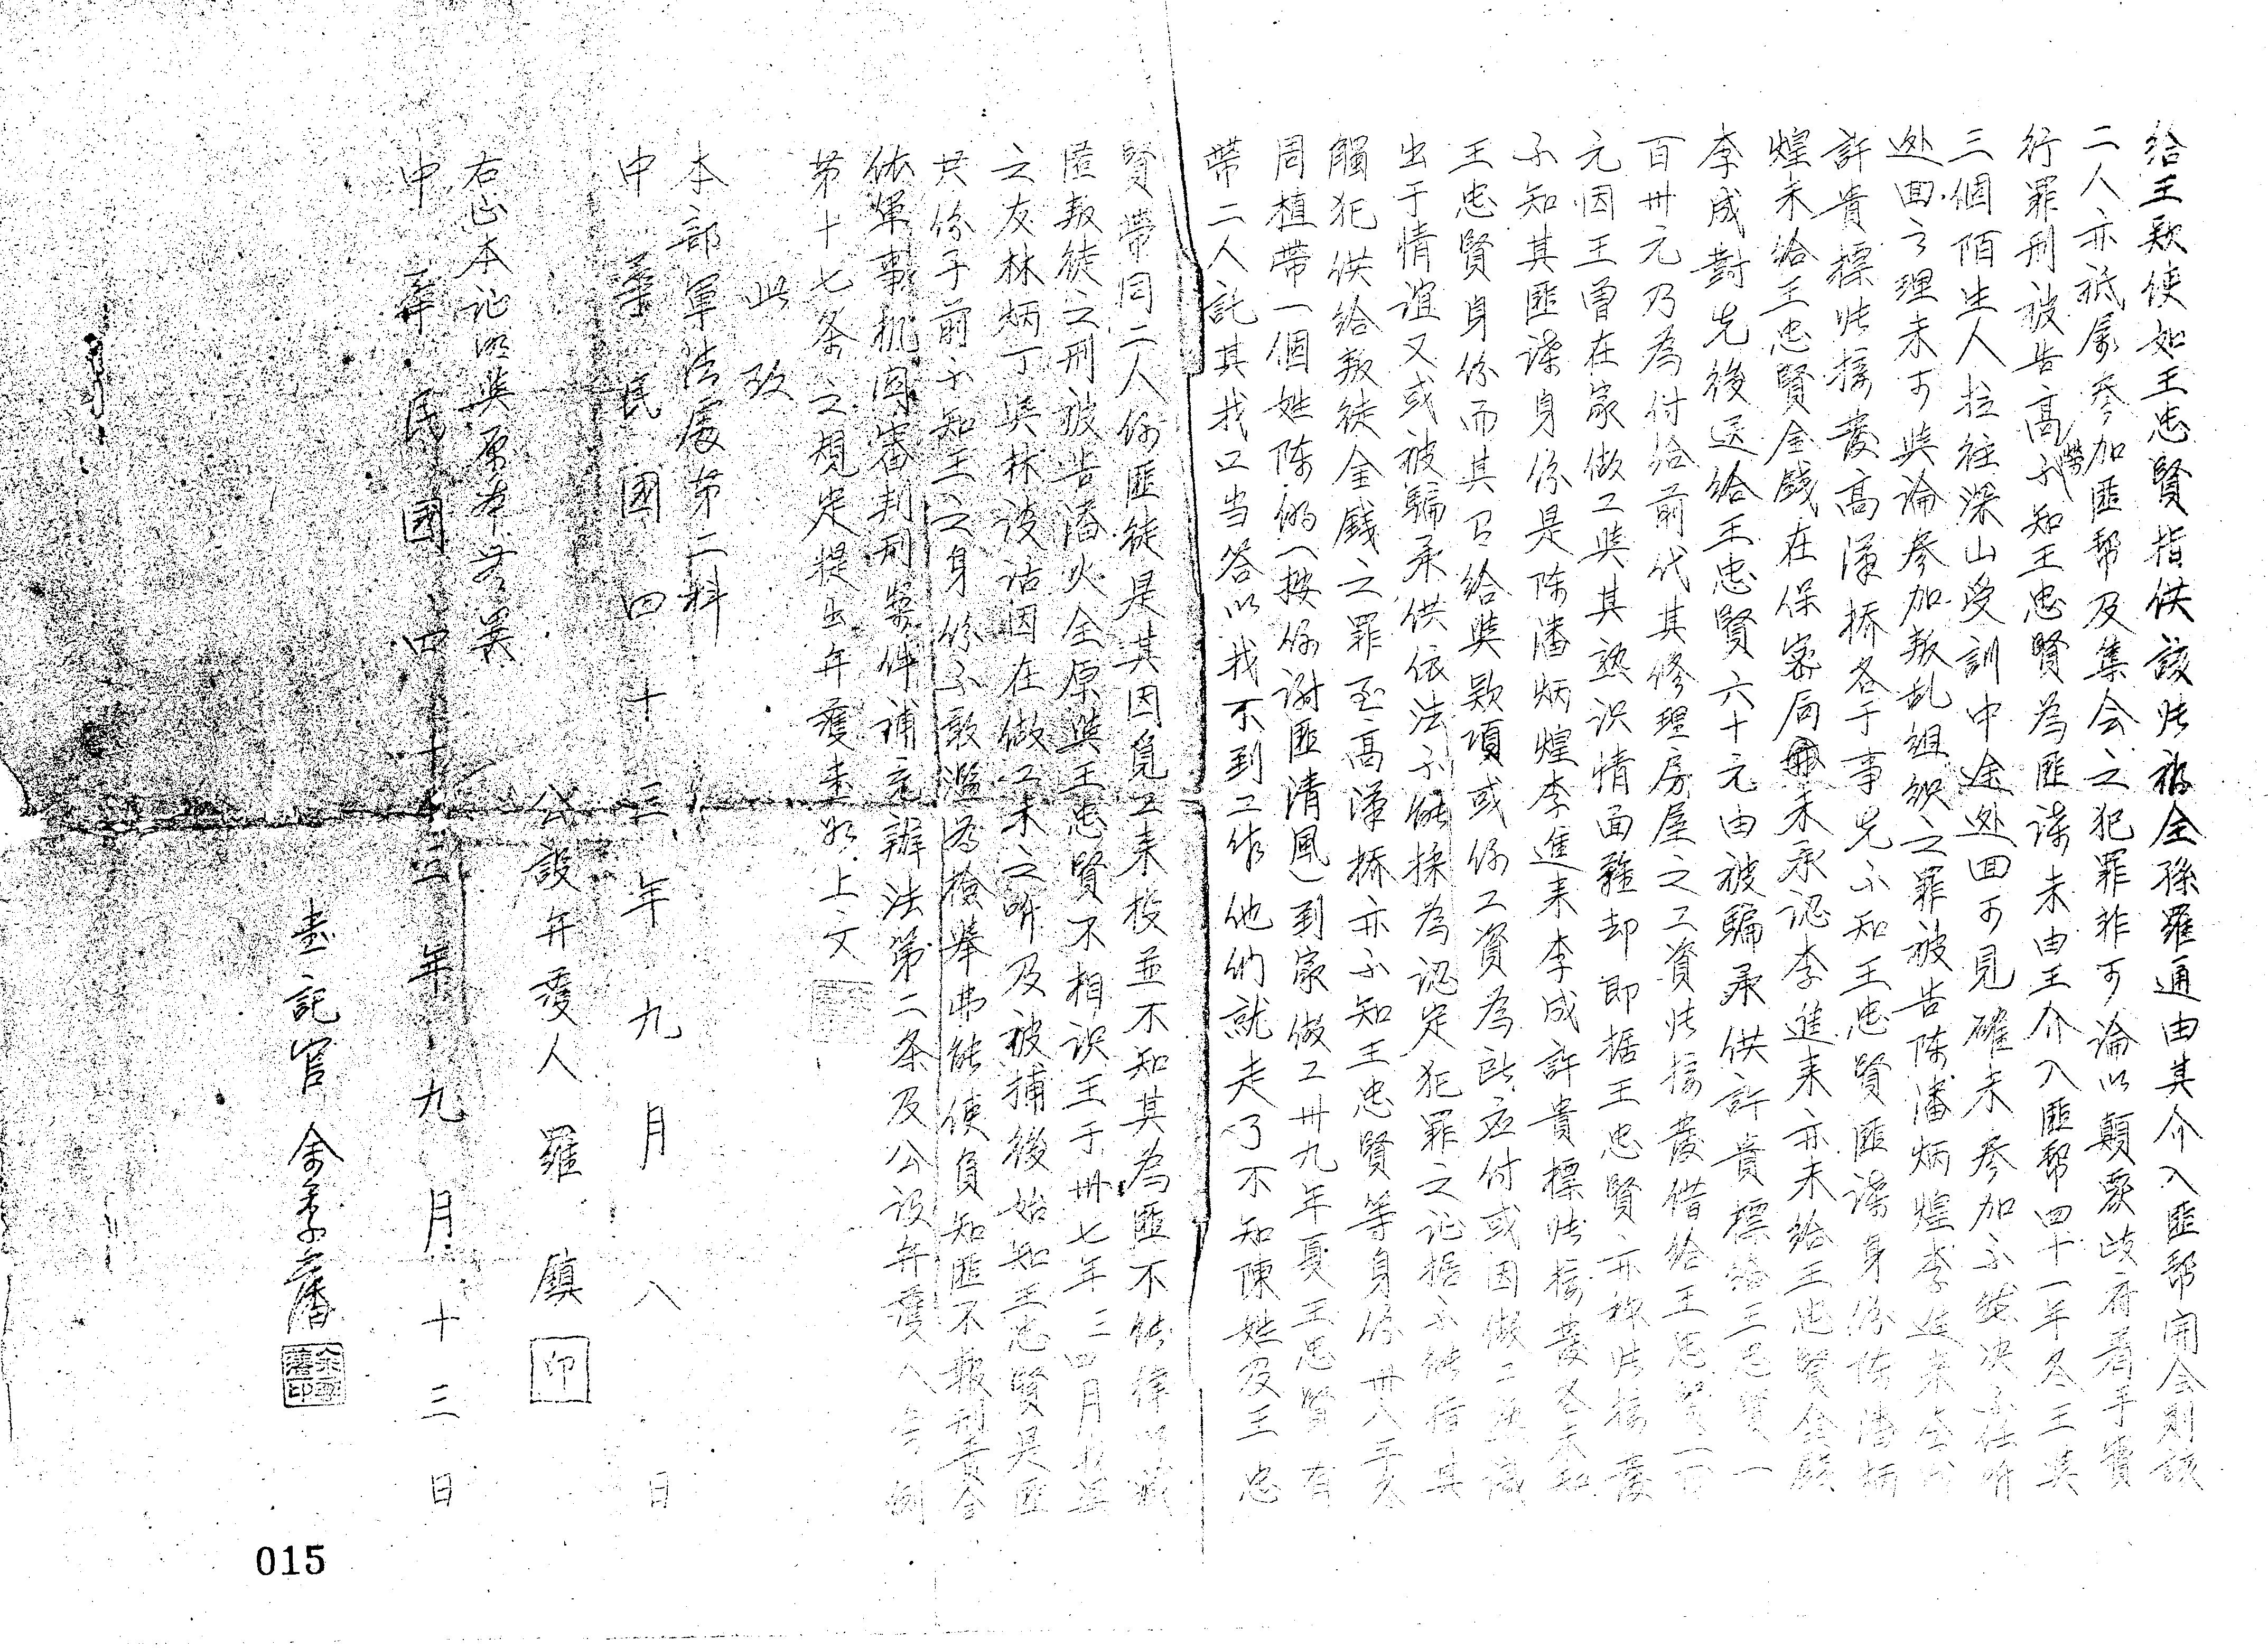 給王欵使如王忠賢指供該张被全孫羅通由其介入匪帮開会則該
二人亦祗屬參加匪帮及集会之犯罪非可論以顛覆政府着手實
行罪刑被告高勞不知王忠賢為匪諜未由王介入匪帮四十一年冬王與
三個陌生人拉往深山受訓中途逃回可見確未參加不能決不任听
逃回之理未可與論參加叛乱組織之罪被告陈潘炳煌李進来
許貴標张接發高漢桥各于事先不知王忠賢匪諜身份陈潘炳
煌未給王忠賢金錢在保密局未承认李進来亦未給王忠賢金錢
李成對先後送給王忠賢六十元由被騙承供許貴標給王忠賢一
百卅元乃為付給前代其修理房屋之工資张接發借給王忠賢一百
元因王曾在家做工與其熟识情面難却即据王忠賢亦称张接發
不知其匪諜身份是陈潘炳煌李進来李成許貴標张接發各未知
王忠賢身份而其已給與欵項或係工資為所应付或因做工熟識
出于情谊又或被騙承供依法不能採為認定犯罪之证据不能指其
觸犯供給叛徒金錢之罪至高漢桥亦不知王忠賢等身份卅八年冬
周植帶一個姓陈的(按係谢匪清風)到家做工卅九年夏王忠賢有
帶二人託其找工当答以我不到工作他們就走了不知陳姓及王忠
賢帶同二人係匪徒是其因覓工来投並不知其為匪不能律以藏
匿叛徒之刑被告潘火全原與王忠賢不相识王于卅七年三四月
之友林炳丁與林波沽因在做工未之听及被捕後始知王忠賢是匪
共份子前不知王之身份不敢濫為檢舉弗能使負知匪不報刑責合
依軍事机関審判刑案件補充辦法第二条及公设弁護人条例
第十七条之規定提出弁護書如上文
此致
本部軍法處第二科
中華民國四十三年九月八日
公設弁護人羅鎮 印
右正本证明與原本無異
中華民國四十三年九月十三日
書記官
015